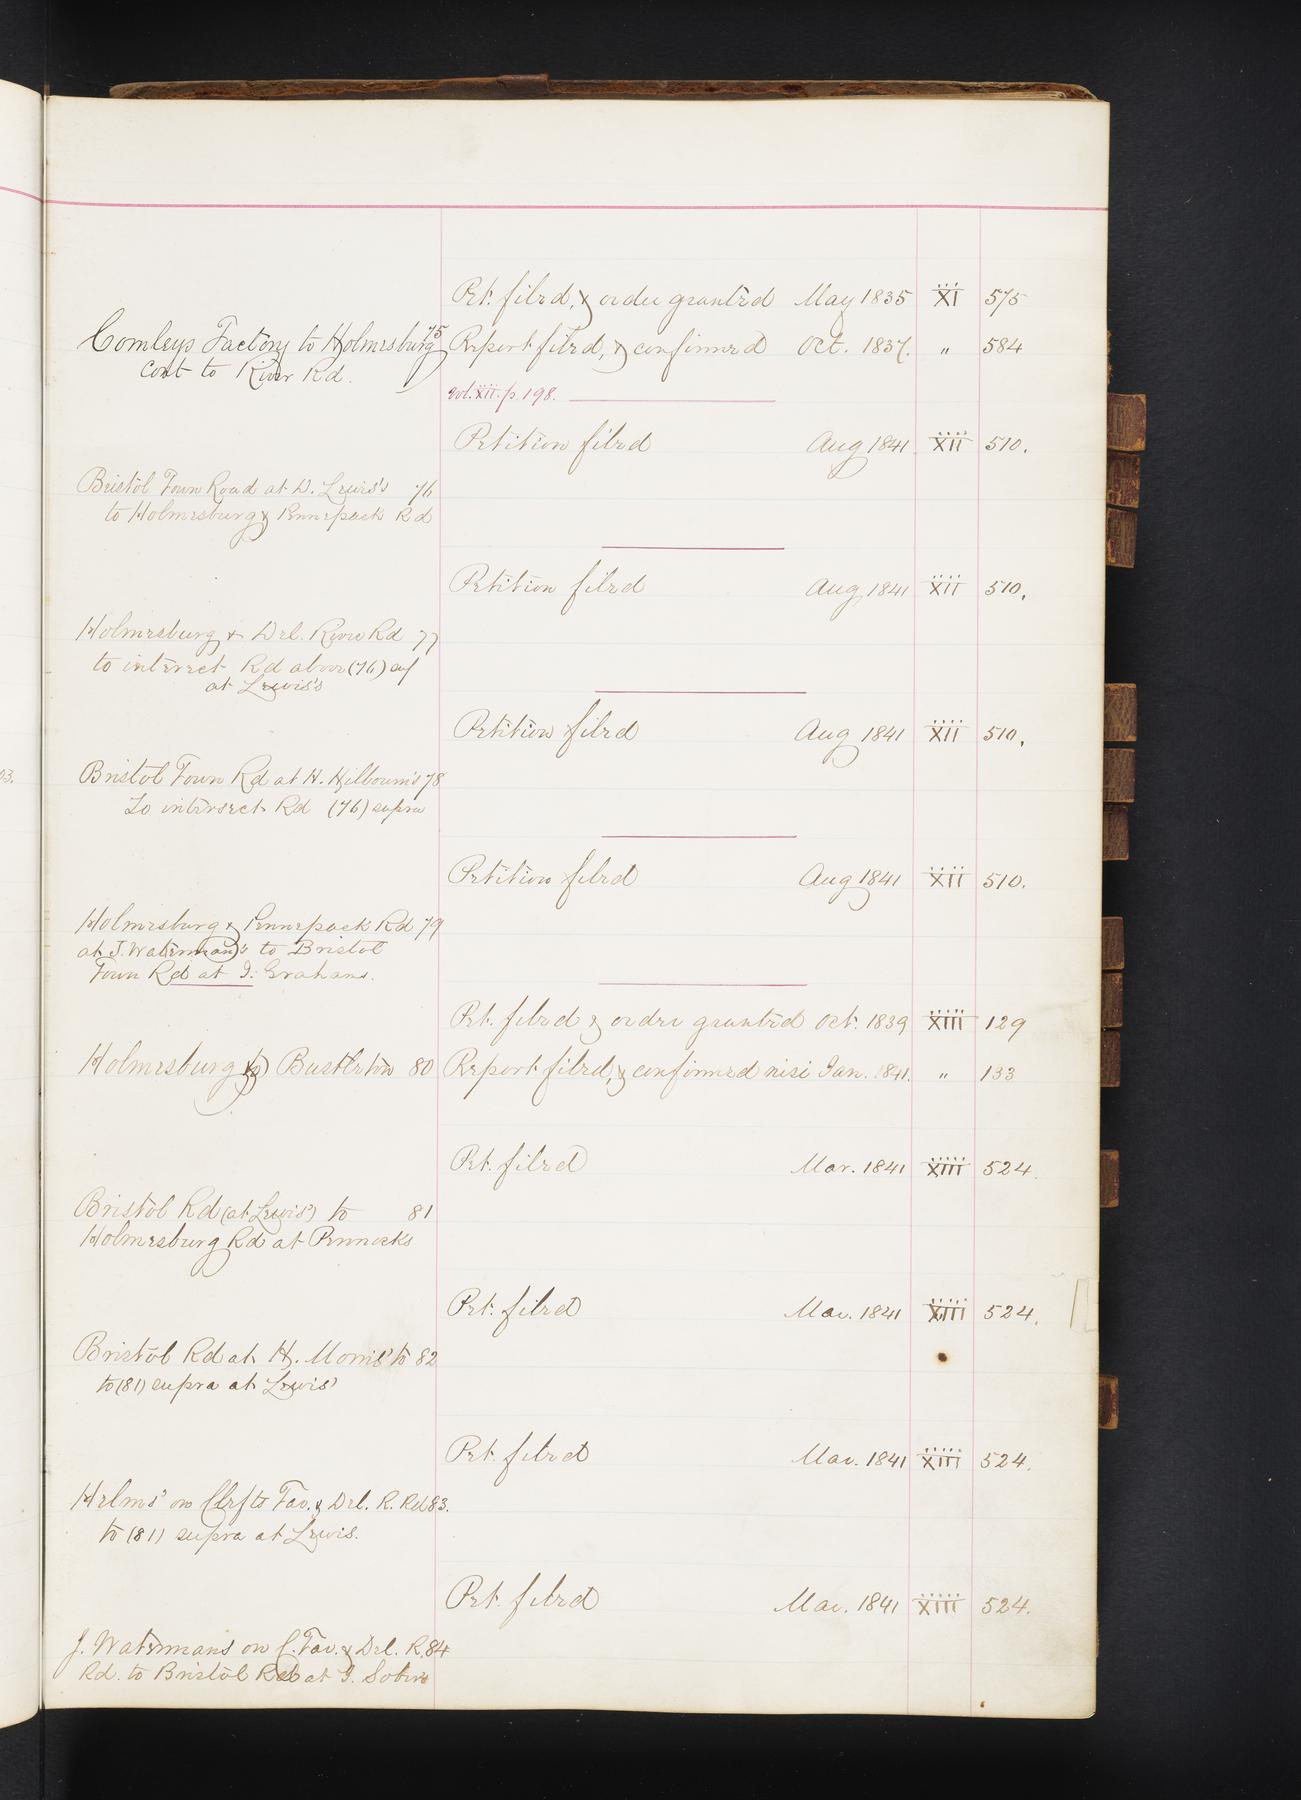 Pet. filed, & order granted May 1835 XI 575
Comleys Factory to Holmesburg 75 Report filed, & confirmed Oct. 1837. " 584
cont to River Rd.
vol. XII. p. 198.
Petition filed Aug 1841 XII 510.
Bristol Town Road at D. Lewis's 76
to Holmesburg & Pennepack Rd
Petition filed Aug 1841 XII 510.
Holmesburg & Del. River Rd 77
to intersect Rd above (76)
at Lewis's
Petition filed Aug 1841 XII 510.
Bristol Town Rd at H. Hilbourn's 78
to intersect Rd (76) supra
Petition filed Aug 1841 XII 510.
Holmesburg & Pennepack Rd 79
at J. Waterman's to Bristol
Town Rd at I. Grahams.
Pet. filed & order granted Oct. 1839 XIII 129
Holmesburg to Bustleton 80 Report filed, & confirmed nisi Jan. 1841. " 133
Pet. filed Mar. 1841 XIII 524.
Bristol Rd (at Lewis') to 81
Holmesburg Rd at Pennocks
Pet. filed Mar. 1841 XIII 524.
Bristol Rd at H. Morris' to 82
to (81) supra at Lewis'
Pet. filed Mar. 1841 XIII 524.
Helms' on Clefts Tav. & Del. R. Rd 83.
to (81) supra at Lewis.
Pet. filed Mar. 1841 XIII 524.
J. Watermans on C. Tav. & Del. R. 84
Rd. to Bristol Rd at I.